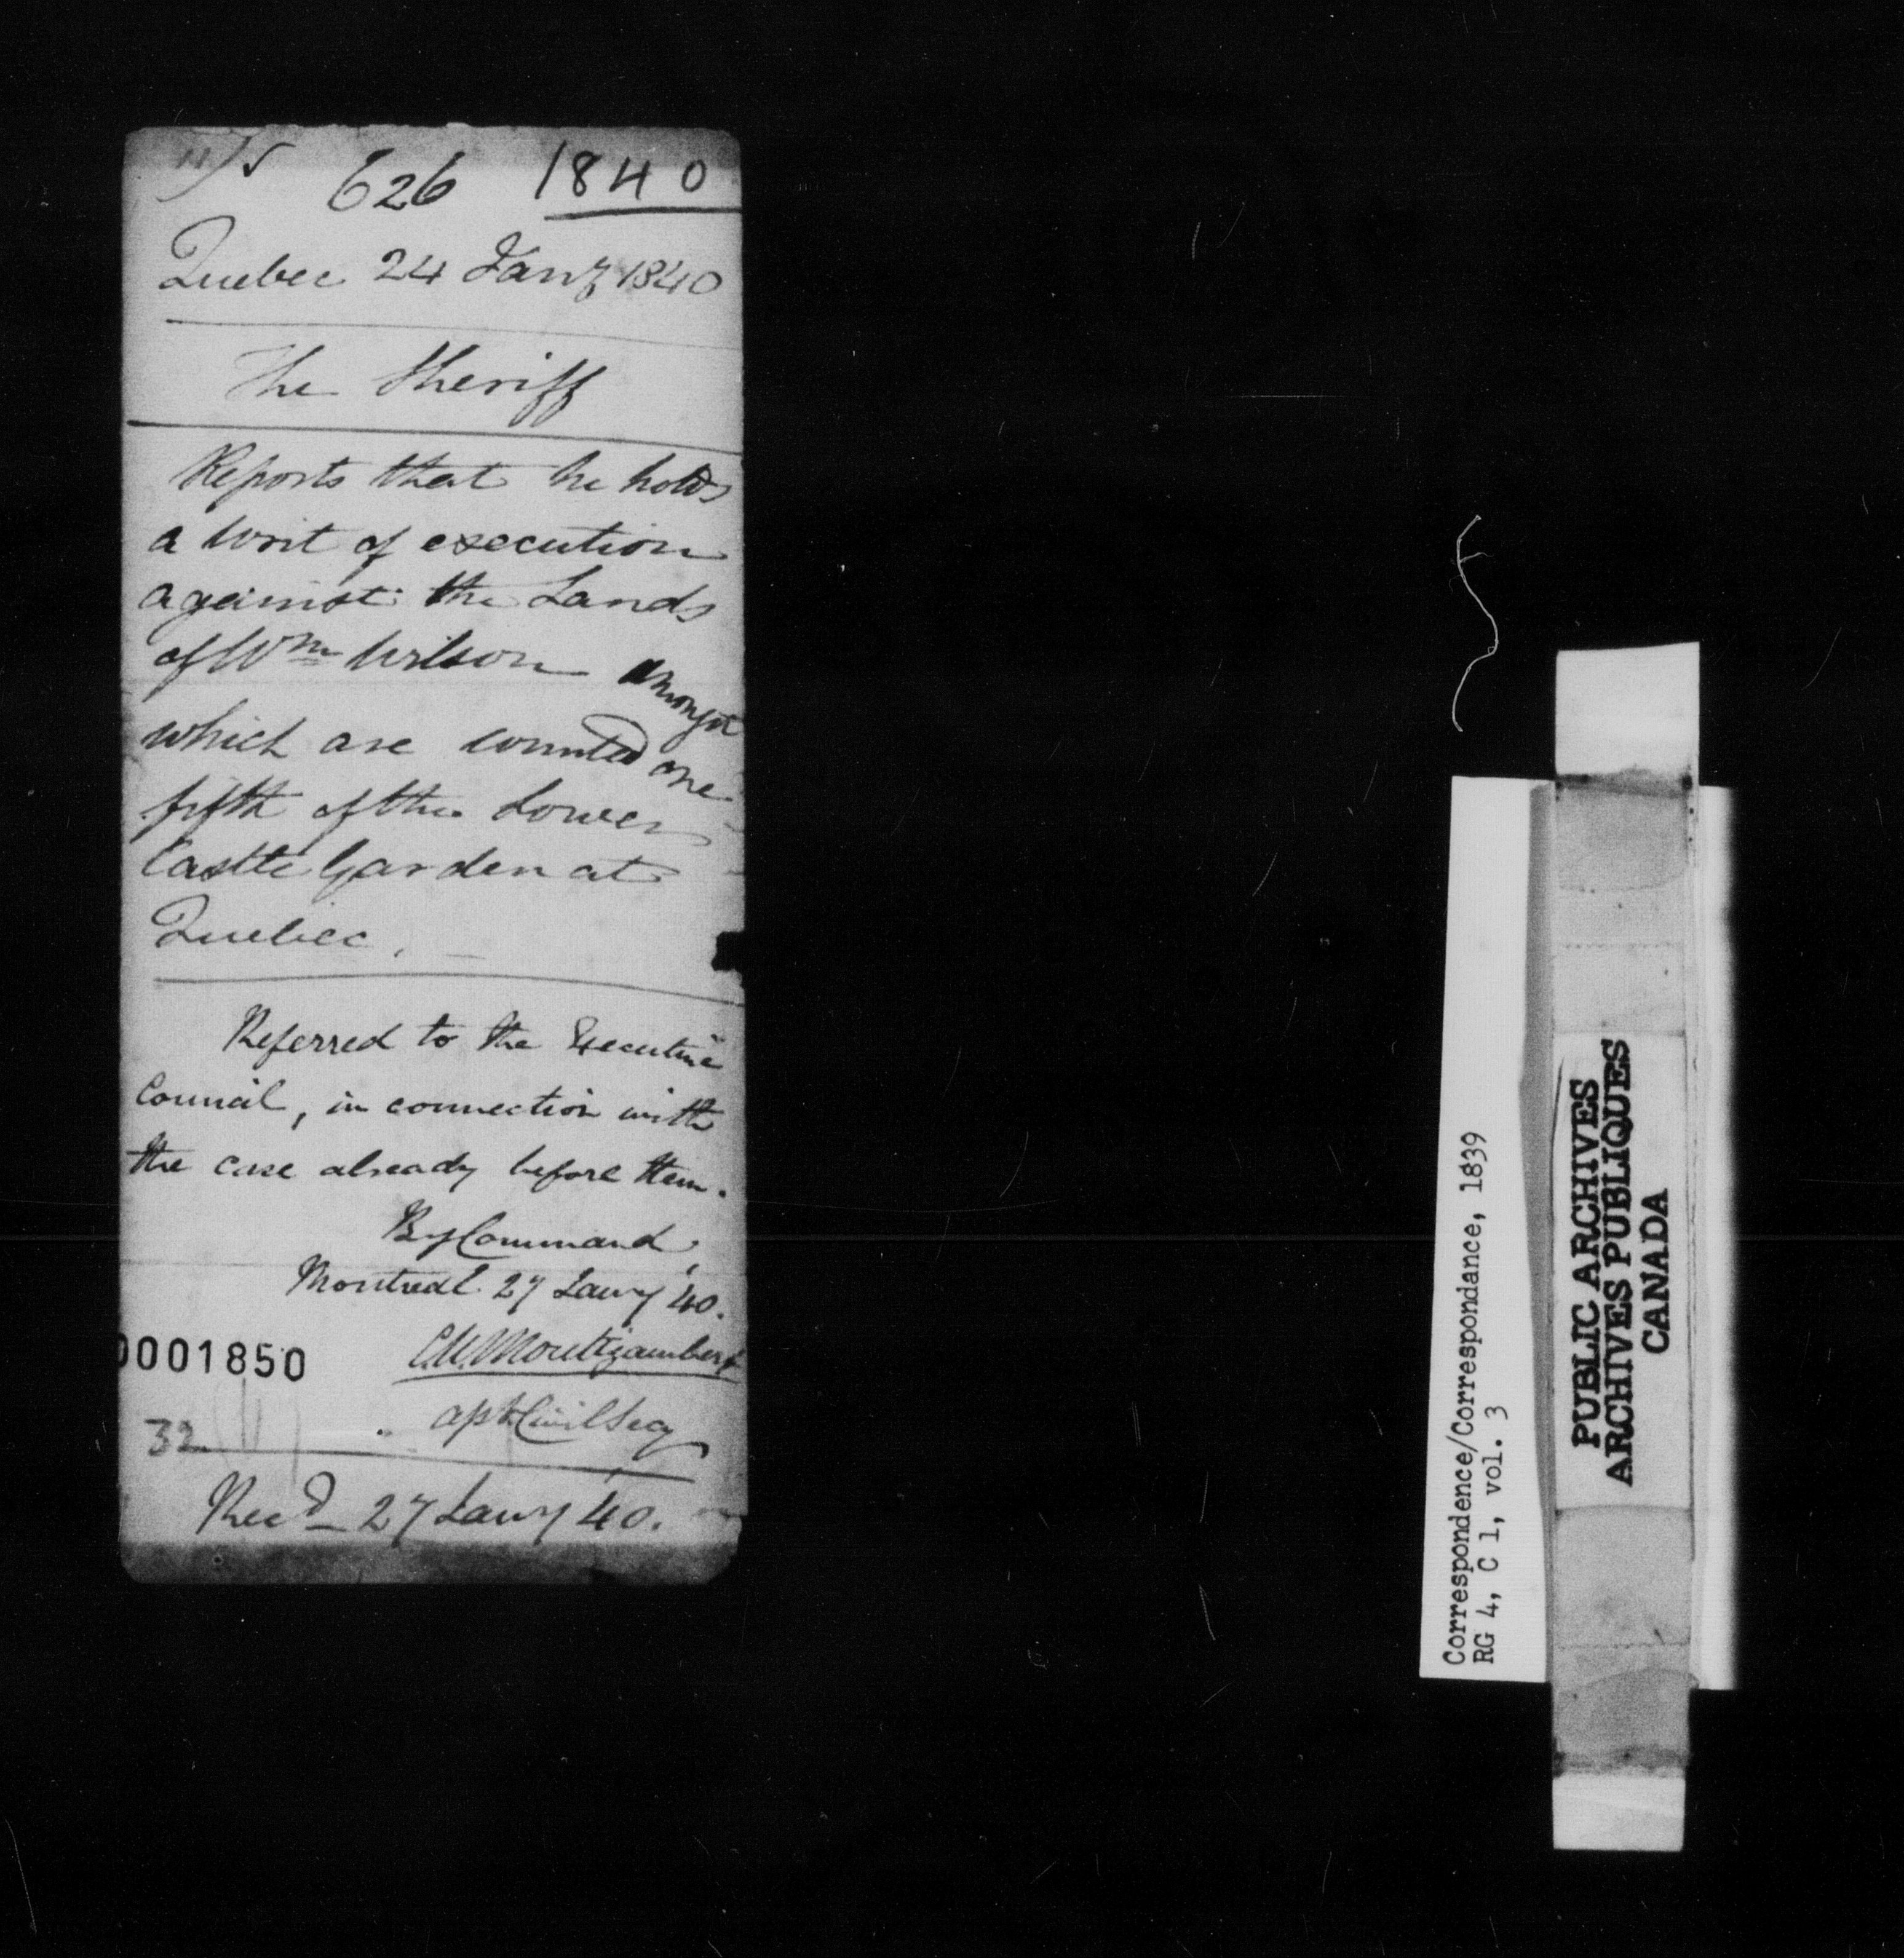 626 1840
Quebec 24 Jany 1840
The Sheriff
Reports that he holds
a writ of execution
against the Lands
of Wm Wilson amongst
which are counted one
fifth of the Lower
Castle Garden at
Quebec.
Referred to the Executive
Council, in connection with
the case already before them.
By Command,
Montreal 27 Jany 40.
C.U. Montizambert
Civil Secy
0001850
32
Recd 27 Jany 40.
Correspondence/Correspondance, 1839
RG 4, C 1, vol. 3
PUBLIC ARCHIVES
ARCHIVES PUBLIQUES
CANADA